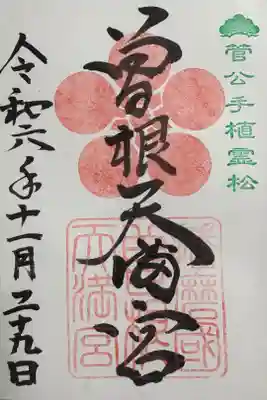 菅公手植霊松
曽根天満宮
播磨國
天満宮
令和六年十一月二十九日